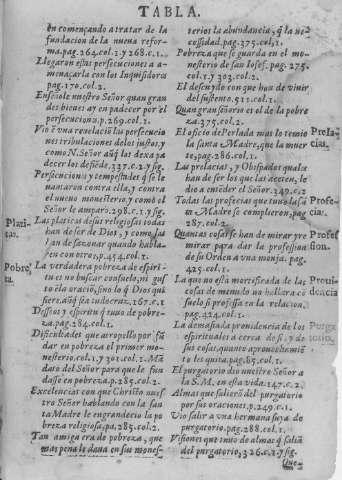 TABLA.
en començando a tratar de la
fundacion de la nueva refor-
ma.pag.264.col.1.y 268.c.1.
Llegaron estas persecuciones a a-
menaçarla con los Inquisidores
pag.170.col.2.
Enseñole nuestro Señor quan gran
des bienes ay en padecer por el
persecucions.p.269.col.1.
Vio è vna reuelaciō las persecucio
nes tribulaciones de los justos, y
como N.Señor aūq̃ los dexa pa
decer los defiēde.337.c.2.y sig.
Persecuciones y tempestades q̃ se le
uantaron contra ella, y contra
el nueuo monesterio, y como el
Señor le amparo.298.c.1.y sig.
Platicas.
Las platicas delas religiosas todas
han de ser de Dios, y como las
han de sazonar quando hablā-
en con otros,p.454.col.1.
Pobreza.
La verdadera pobreza de espiri-
tu es no buscar consuelo, ni gus-
to è la oraciō, sino lo q̃ Dios qui
siere, aūq̃ sea sudocraz.167.c.1
Desseos y espiritu q̃ tuuo de pobre-
za.pag.284.col.1.
Dificultades que atropello por fū
dar en pobreza el primer mo-
nesterio.col.1.y 301.col.1.Mā
dato del Señor para que le fun
dasse en pobreza.p.285.col.2.
Excelencias con que Christo nues
tro Señor hablando con la san
ta Madre le engrandecio la po
breza religiosa,pa.285.col.2.
Tan amiga era de pobreza, que
mas pena le daua en sus mones-
terios la abundancia, q̃ la ne-
cessidad.pag.375.col.1.
Pobreza que se guarda en el mo-
nesterio de san Iosef.pag.275.
col.1.y 303.col.2.
El descuydo con que han de viuir
del sustento.511.col.1.
Quan gran señorio es el de la pobre
za.375.col.2.
El oficio de Perlada mas lo temio
la santa Madre, que la muer
te,pag.286.col.1.
Las prelacias, y Obispados quales
han de ser los que las acceten, le
dio a entēder el Señor.349.c.2
Todas las profecias que tuuo la sã
ta Madre se complieron, pag
287.col.2.
Quantas cosas se han de mirar pre
mirar para dar la profession
de su Orden a vna monja. pag
425.col.1.
La que no està mortificada de las
cosas de mundo no hallara cō
suelo si professa en la relacion.
pag.424.col.1.
La demasiada prouidencia de los
espirituales a cerca de si, y de
sus cosas,quanto aprouechamiē
to les quita.pag.85.col.1.
El purgatorio dio nuestro Señor a
la S.M. en esta vida.147.c.2.
Almas que salierō del purgatorio
por sus oraciones.p.249.c.1.
Vio salir a vna hermana suya de
purgatorio.pag.288.col.1.
Visiones que tuuo de almas q̃ saliā
del purgatorio,326.c.1.y sig.
Que-
Prelacias.
Profecias.
Profession.
Prouidencia
Purgatorio.